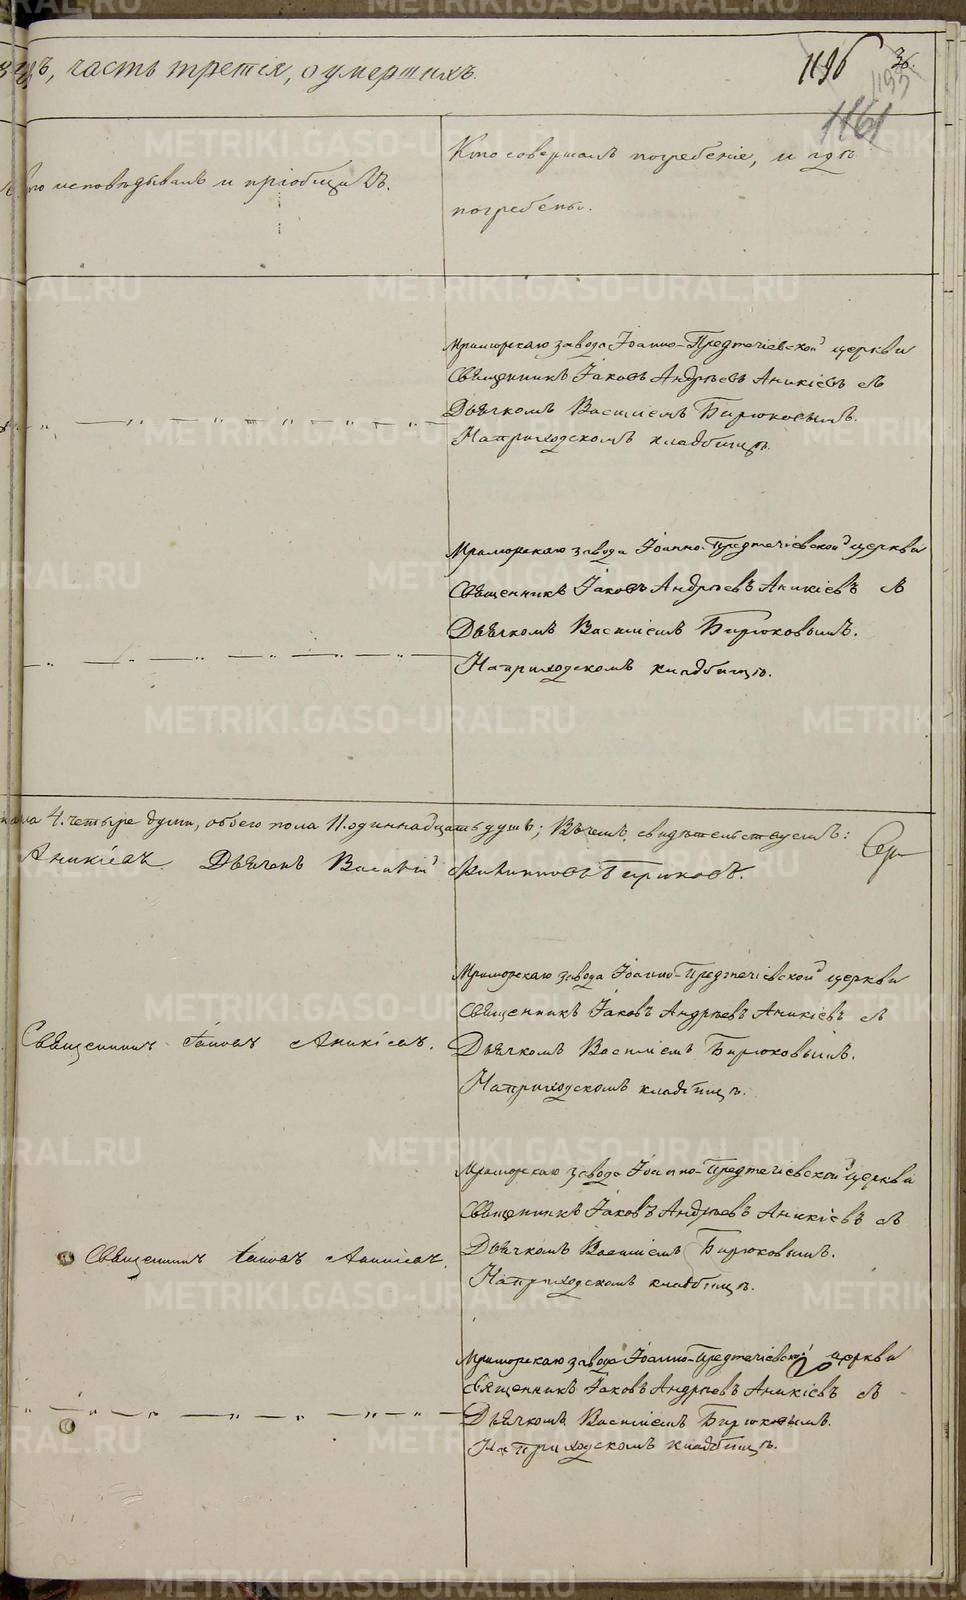 часть третія, о умершихъ.
1196
36.
1193
1161
Кто исповѣдывалъ и пріобщалъ.
Кто совершалъ погребеніе, и гдѣ
погребены.
Мраморскаго завода Іоанно-Предтечіевской церкви
Священникъ Іаковъ Андреевъ Аникіевъ съ
Дьячкомъ Василіемъ Бирюковымъ.
На приходскомъ кладбищѣ.
Мраморскаго завода Іоанно-Предтечіевской церкви
Священникъ Іаковъ Андреевъ Аникіевъ съ
Дьячкомъ Василіемъ Бирюковымъ.
На приходскомъ кладбищѣ.
пола 4. четыре души, обоего пола 11. одиннадцать душъ; Въ чемъ свидѣтельствуемъ:
Аникіевъ Дьячекъ Василій Бирюковъ.
Мраморскаго завода Іоанно-Предтечіевской церкви
Священникъ Іаковъ Андреевъ Аникіевъ съ
Священникъ Іаковъ Аникіевъ.
Дьячкомъ Василіемъ Бирюковымъ.
На приходскомъ кладбищѣ.
Мраморскаго завода Іоанно-Предтечіевской церкви
Священникъ Іаковъ Андреевъ Аникіевъ съ
Священникъ Іаковъ Аникіевъ.
Дьячкомъ Василіемъ Бирюковымъ.
На приходскомъ кладбищѣ.
Мраморскаго завода Іоанно-Предтечіевской церкви
Священникъ Іаковъ Андреевъ Аникіевъ съ
Дьячкомъ Василіемъ Бирюковымъ.
На приходскомъ кладбищѣ.
METRIKI.GASO-URAL.RU